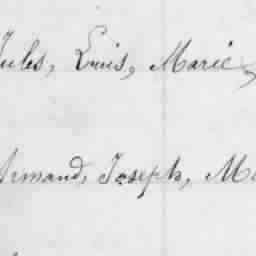 Jules, Louis, Marie
Armand, Joseph, M